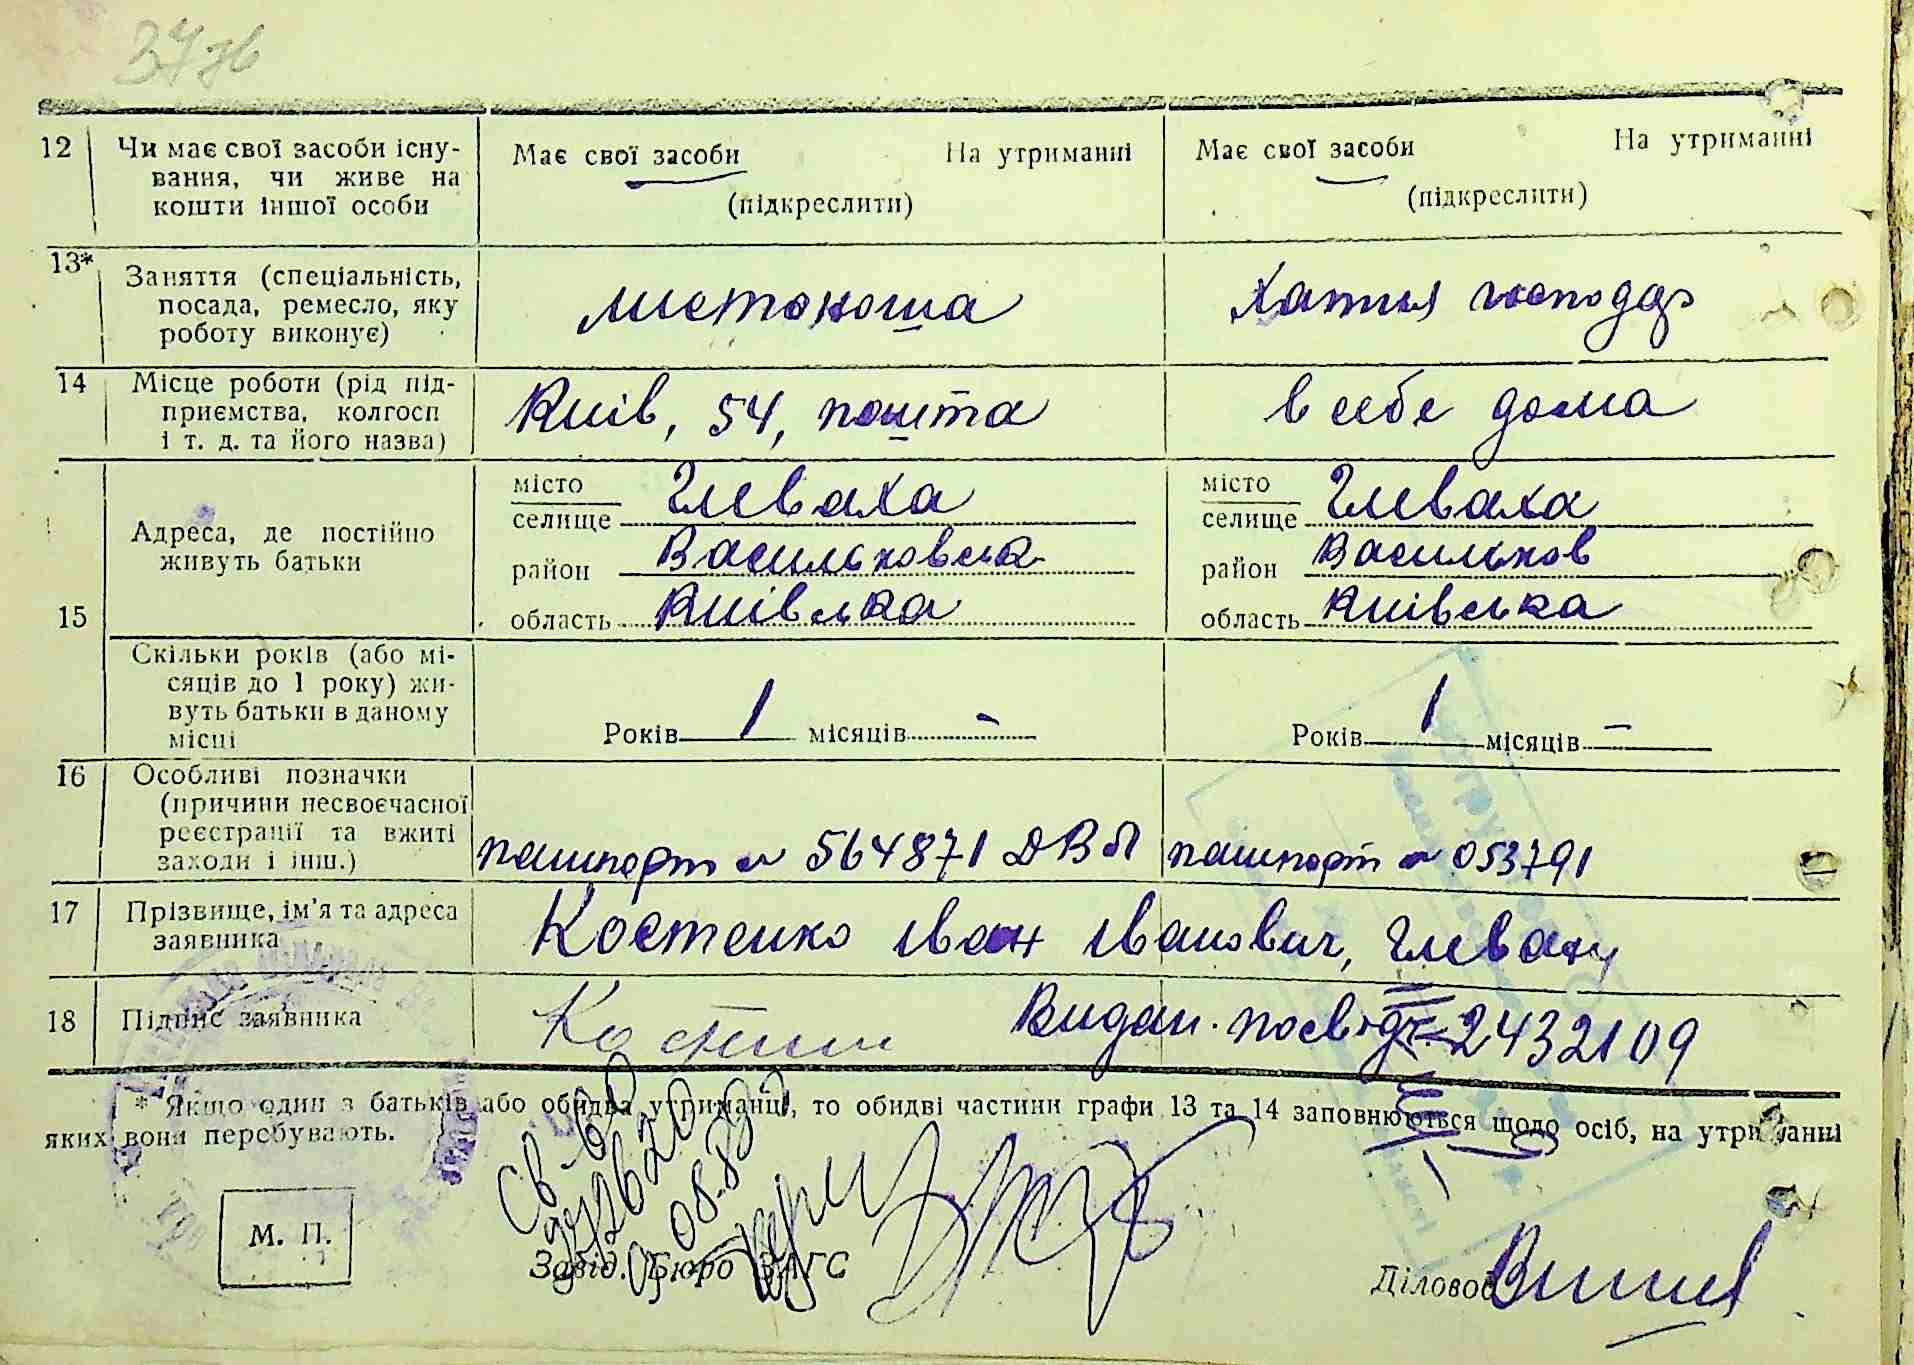 37 зв
12 Чи має свої засоби існу-
вання, чи живе на
кошти іншої особи
Має свої засоби На утриманні
(підкреслити)
Має свої засоби На утриманні
(підкреслити)
13* Заняття (спеціальність,
посада, ремесло, яку
роботу виконує)
листоноша
Хатня господар
14 Місце роботи (рід під-
приємства, колгосп
і т. д. та його назва)
Київ, 54, пошта
в себе дома
15
Адреса, де постійно
живуть батьки
місто
селище Глеваха
район Васильковська
область Київська
місто
селище Глеваха
район Васильков
область Київська
Скільки років (або мі-
сяців до 1 року) жи-
вуть батьки в даному
місці
Років 1 місяців –
Років 1 місяців –
16 Особливі позначки
(причини несвоєчасної
реєстрації та вжиті
заходи і інш.)
пашпорт № 564871
пашпорт № 053791
17 Прізвище, ім'я та адреса
заявника
Костенко Іван Іванович, Глеваху
18 Підпис заявника
Видан. посвідч. 2432109
* Якщо один з батьків або обидва утриманці, то обидві частини графи 13 та 14 заповнюються щодо осіб, на утриманні
яких вони перебувають.
М. П.
Завід. Бюро ЗАГС
Діловод